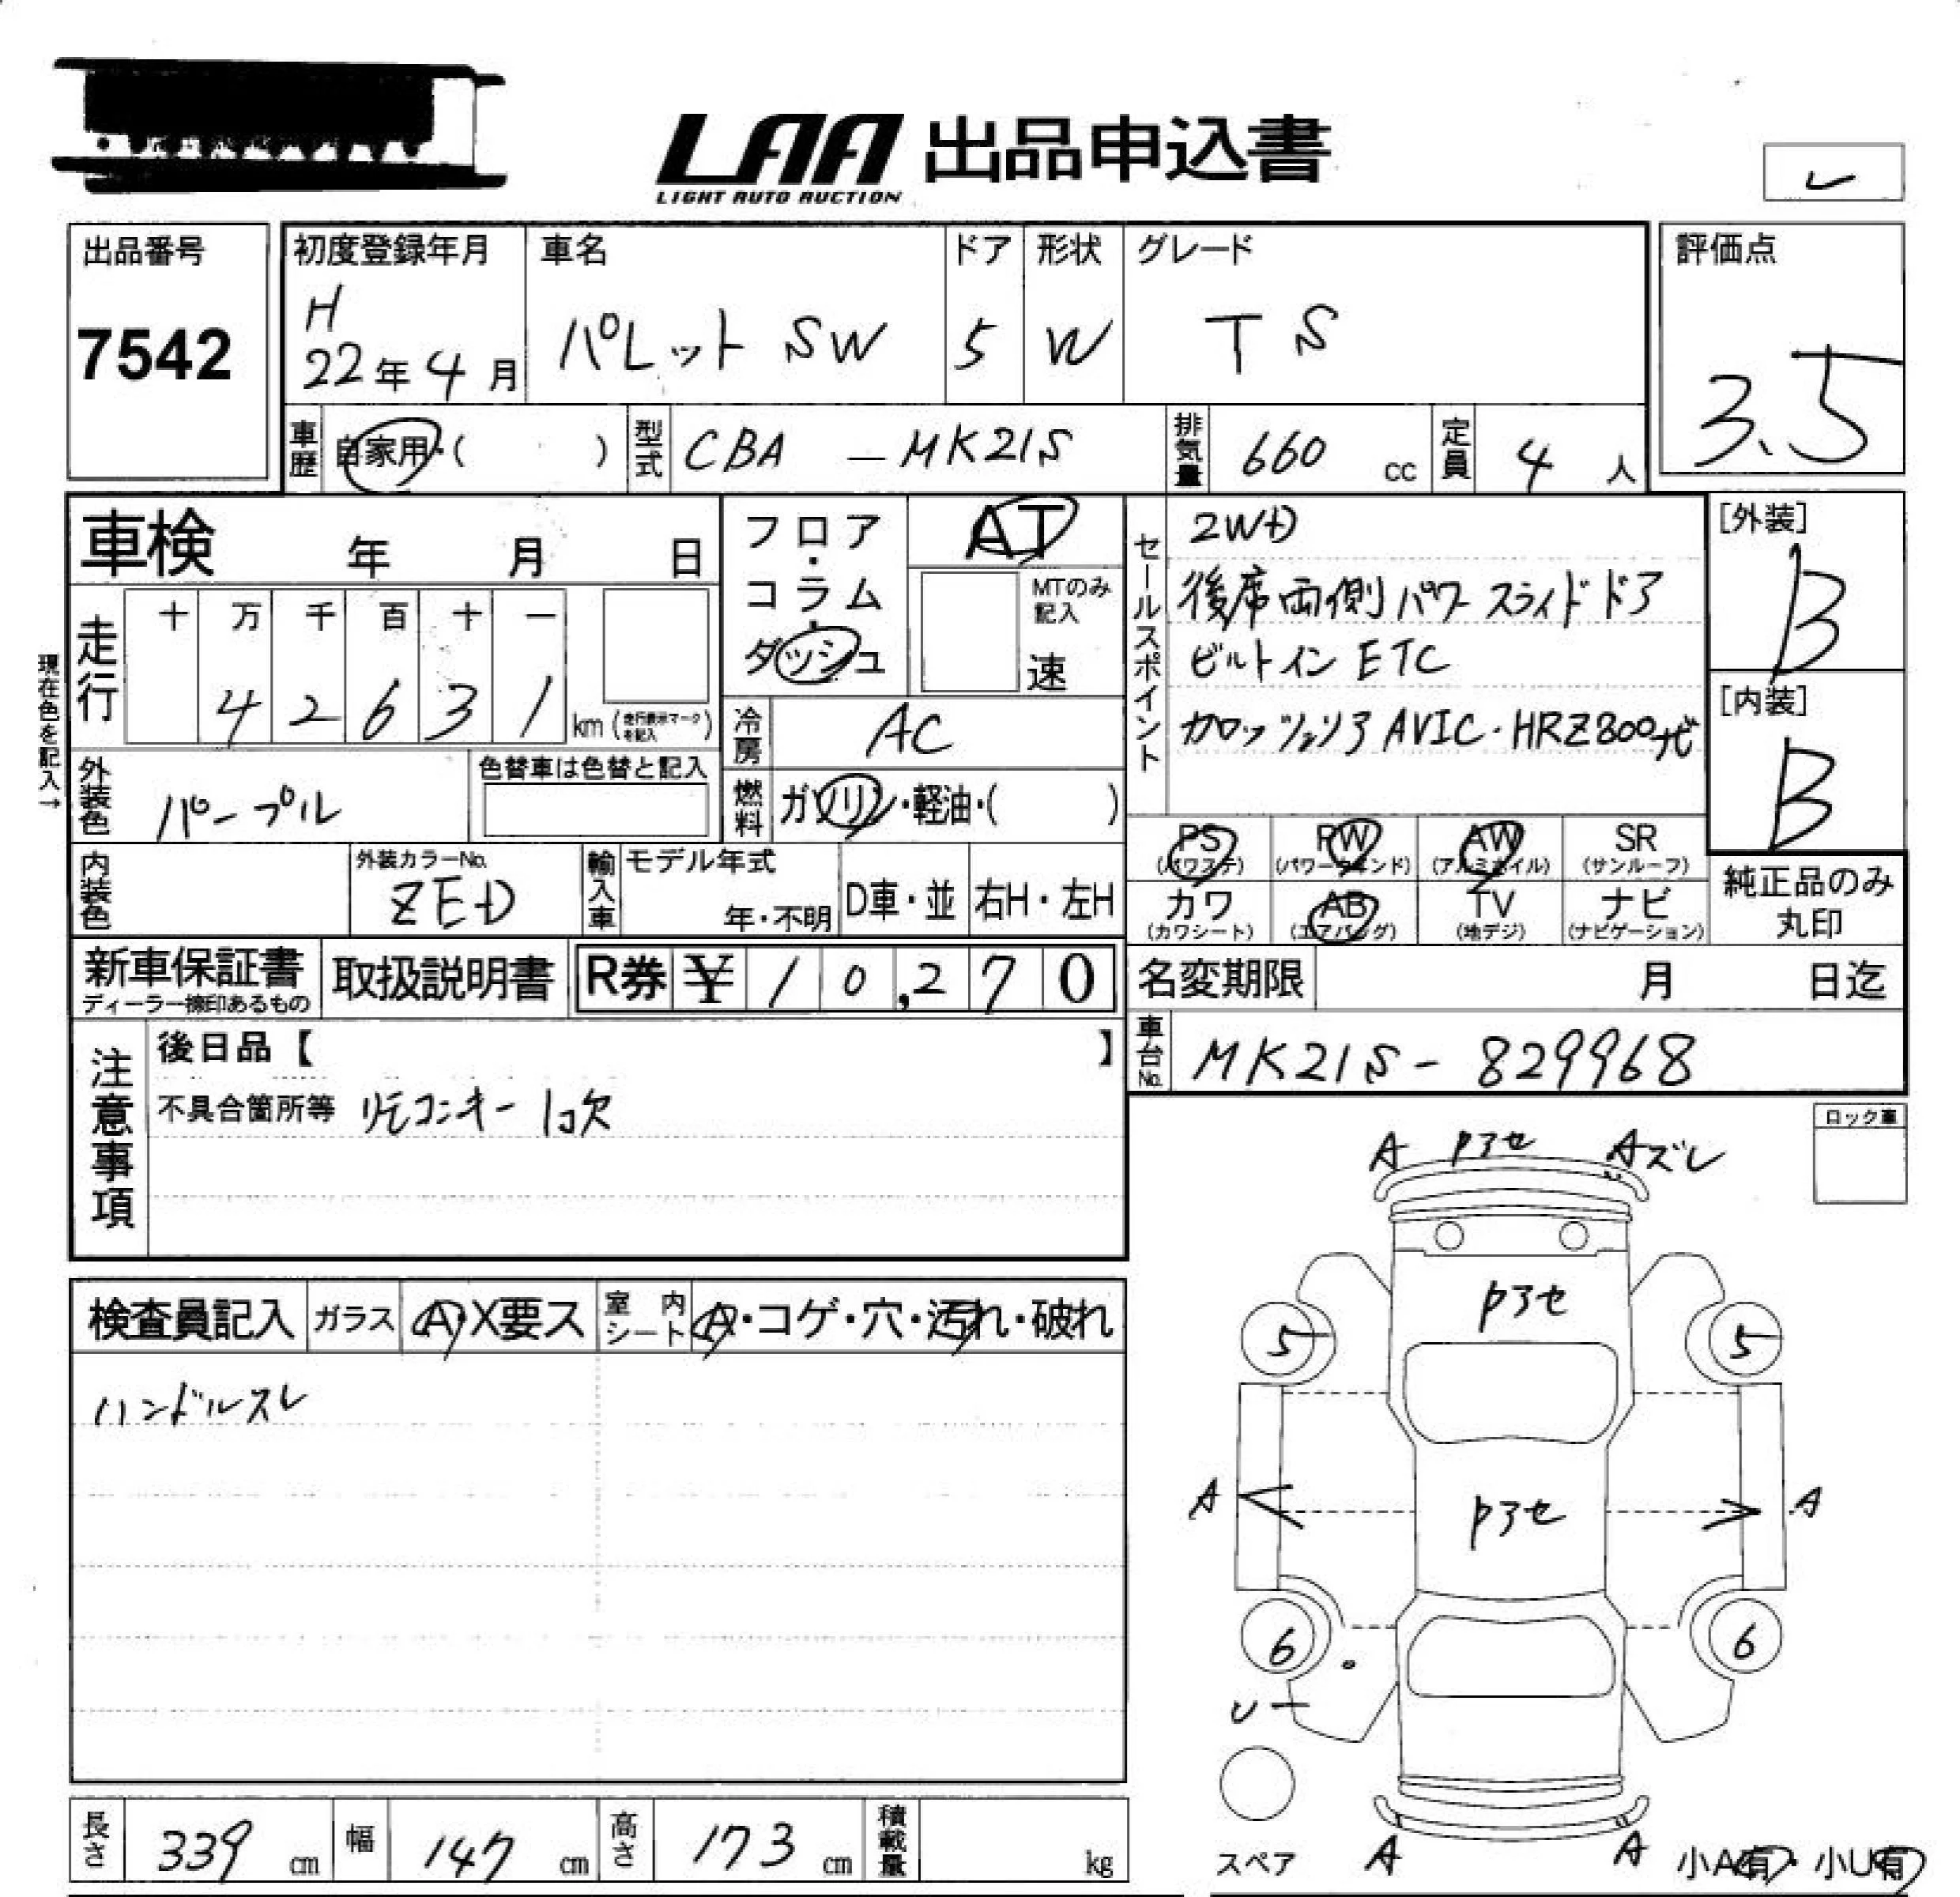 LAA 出品申込書
LIGHT AUTO AUCTION
レ
出品番号
7542
初度登録年月
H
22年 4月
車名
パレット SW
ドア
5
形状
W
グレード
T S
評価点
3.5
車歴
自家用・( )
型式
CBA - MK21S
排気量
660 cc
定員
4 人
車検 年 月 日
現在色を記入→
走行
十 万 千 百 十 一
4 2 6 3 1 km (走行表示マークを記入)
フロア・コラム・ダッシュ
AT
MTのみ記入
速
冷房
AC
燃料
ガソリン・軽油・( )
セールスポイント
2WD
後席両側パワースライドドア
ビルトインETC
カロッツェリア AVIC・HRZ800ナビ
[外装]
B
[内装]
B
外装色
パープル
色替車は色替と記入
内装色
外装カラーNo.
ZED
輸入車
モデル年式
年・不明
D車・並
右H・左H
PS
(パワステ)
PW
(パワーウインド)
AW
(アルミホイル)
SR
(サンルーフ)
カワ
(カワシート)
AB
(エアバッグ)
TV
(地デジ)
ナビ
(ナビゲーション)
純正品のみ
丸印
新車保証書
ディーラー捺印あるもの
取扱説明書
R券 ¥10,270
名変期限 月 日迄
車台No.
MK21S - 829968
注意事項
後日品【 】
不具合箇所等 リモコンキー1コ欠
ロック車
A アセ Aズレ
アセ
5 5
A アセ A
6 6
レ
スペア
A A
小A有・小U有
検査員記入
ガラス
A・X要ス
室内シート
A・コゲ・穴・汚れ・破れ
ハンドルスレ
長さ 339 cm
幅 147 cm
高さ 173 cm
積載量 kg